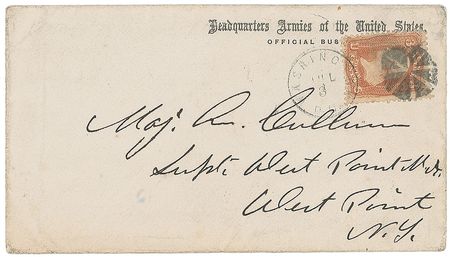 Headquarters Armies of the United States,
OFFICIAL BUS
JUL
Maj. Gn. Cullum
Supt. West Point M.A.
West Point
N.Y.